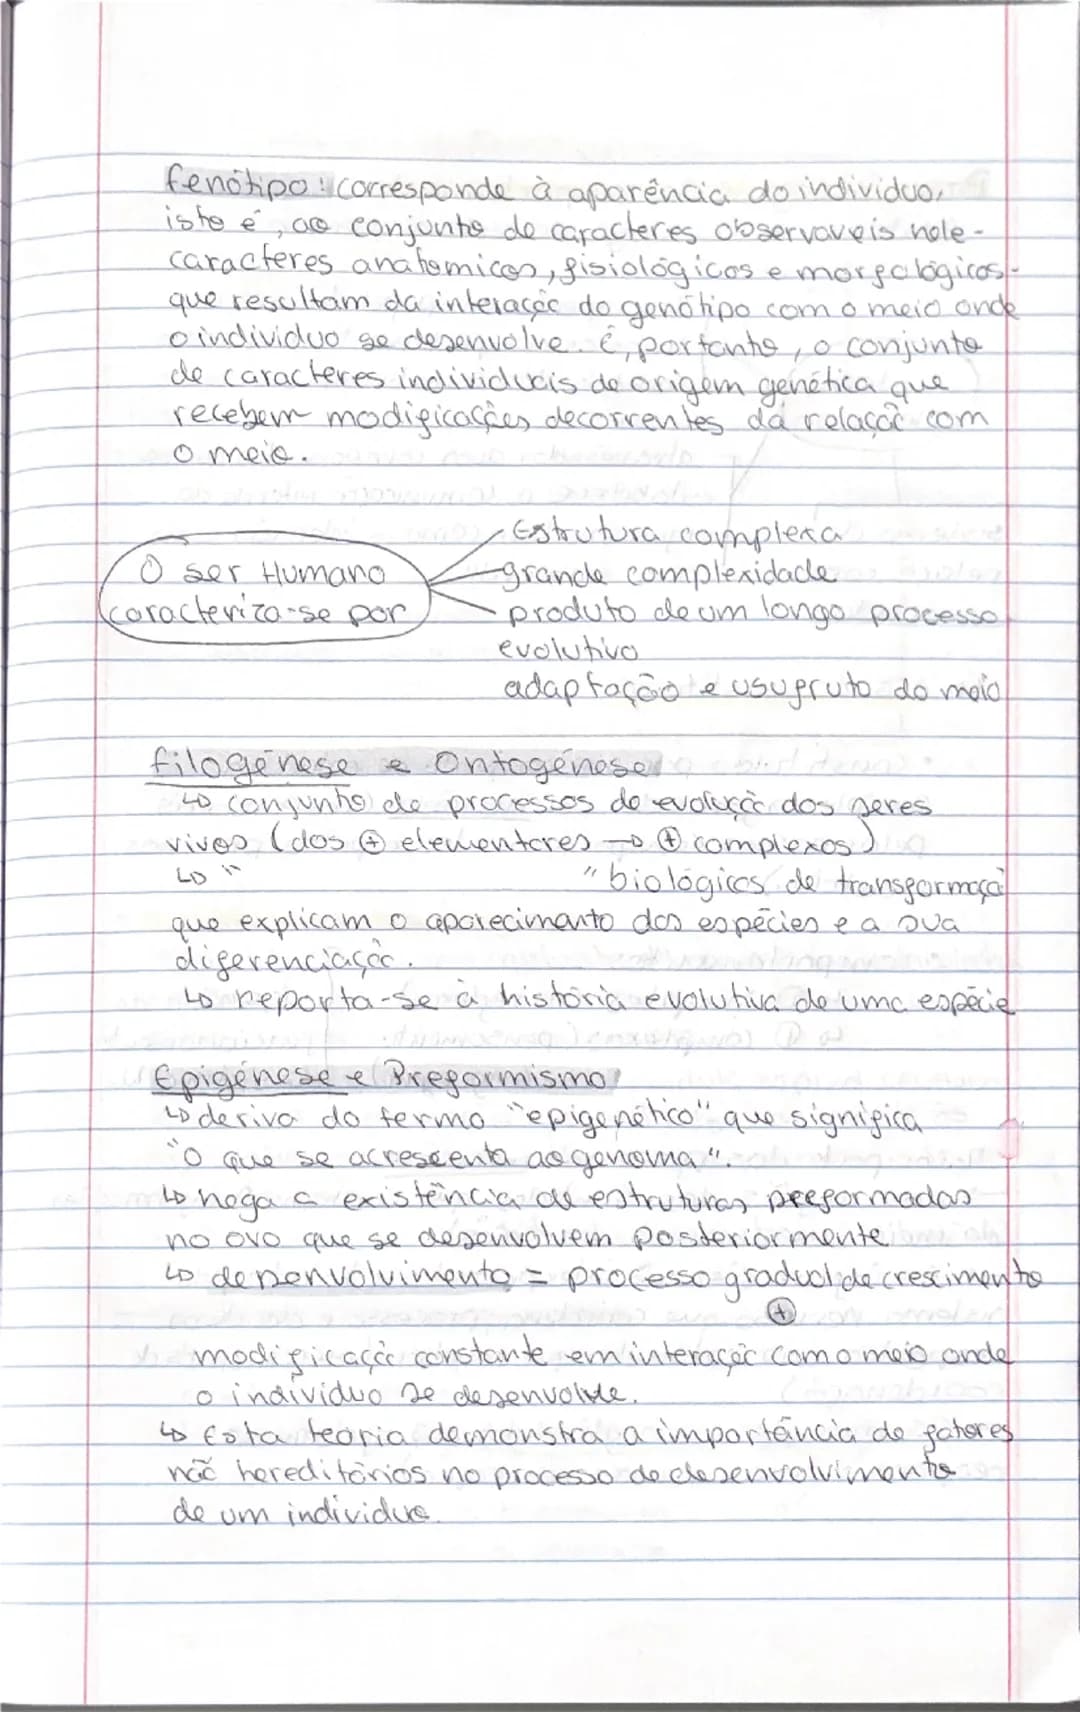 fenótipo: corresponde à aparência do individuo,
isto é, ao conjunto de caracteres observaveis nele -
caracteres anatomicos, fisiológicos e morfológicos -
que resultam da interação do genótipo com o meio onde
o individuo se desenvolve. É, portanto, o conjunto
de caracteres individuais de origem genética que
recebem modificações decorrentes da relação com
o meio.
O ser Humano
caracteriza-se por
Estrutura complexa
grande complexidade
produto de um longo processo
evolutivo
adaptação e usufruto do meio
filogénese e Ontogénese
↳ conjunto de processos de evolução dos seres
vivos (dos ⊕ elementares → ⊕ complexos)
↳ " " biológicos de transformaçã
que explicam o aparecimento das espécies e a sua
diferenciação.
↳ reporta-se à história evolutiva de uma espécie
Epigénese e Preformismo
↳ deriva do termo "epigenético" que significa
"o que se acrescenta ao genoma".
↳ nega a existência de estruturas preformadas
no ovo que se desenvolvem posteriormente
↳ desenvolvimento = processo gradual de crescimento
⊕
modificação constante em interação com o meio onde
o individuo se desenvolve.
↳ Esta teoria demonstra a importância de fatores
não hereditários no processo de desenvolvimento
de um individuo.